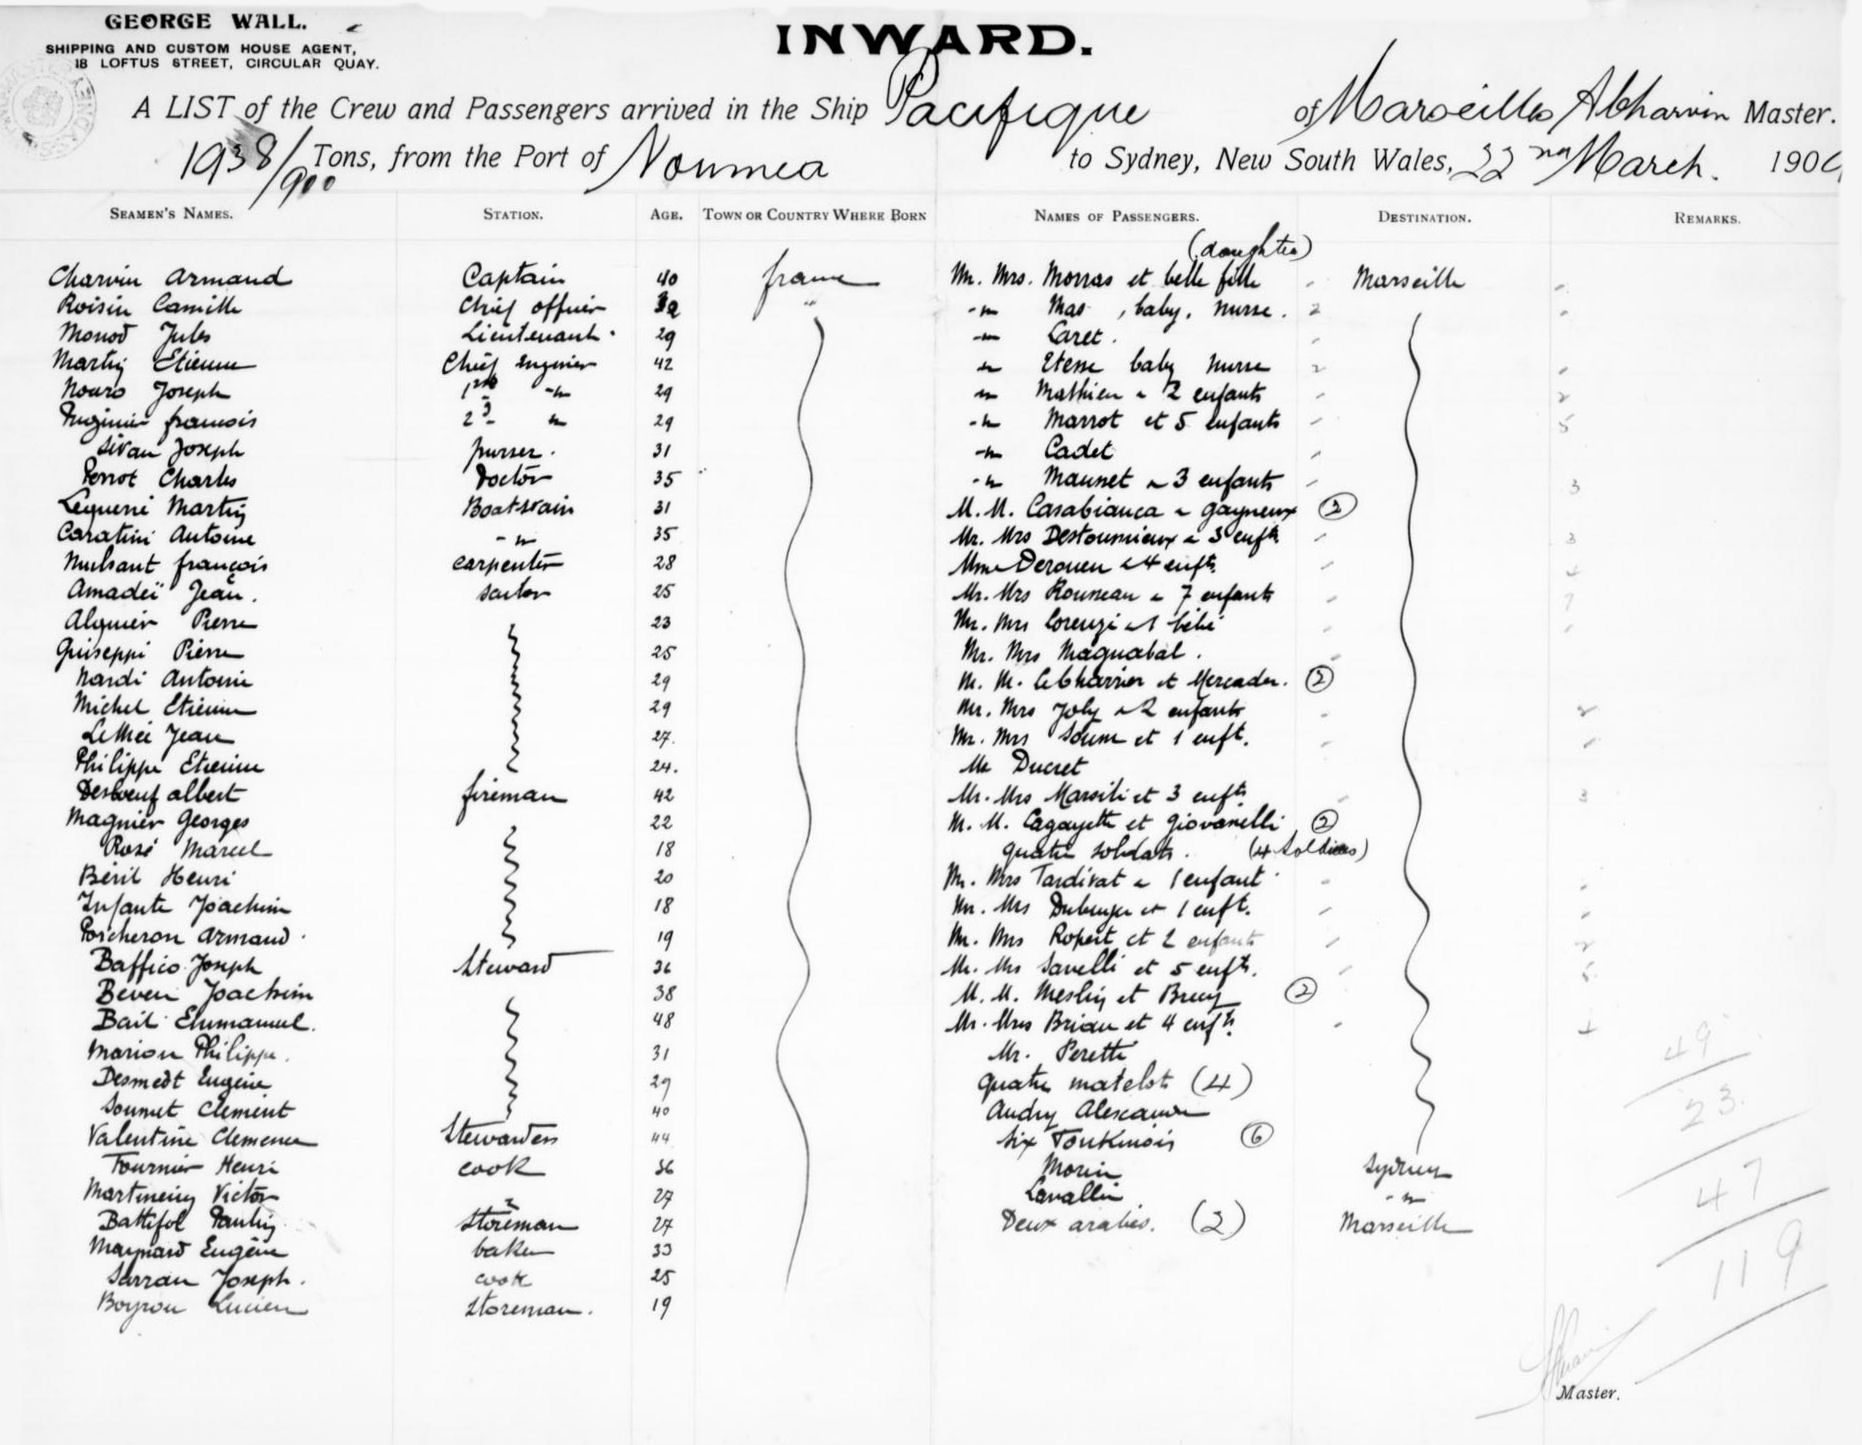 GEORGE WALL.
SHIPPING AND CUSTOM HOUSE AGENT,
18 LOFTUS STREET, CIRCULAR QUAY.
INWARD.
A LIST of the Crew and Passengers arrived in the Ship Pacifique of Marseilles A Charvin Master.
1938/900 Tons, from the Port of Noumea to Sydney, New South Wales, 22nd March. 190
SEAMEN'S NAMES. STATION. AGE. TOWN OR COUNTRY WHERE BORN NAMES OF PASSENGERS. DESTINATION. REMARKS.
(daughter)
Charvin Armand Captain 40 france Mr. Mrs. Morras et belle fille Marseille
Roisin Camille Chief officer " -"- Mas, baby, nurse. 2
Monod Jules Lieutenant 29 -"- Caret.
Martin Etienne Chief Engineer 42 " baby nurse 2
Nouro Joseph 1st -"- 29 " Mathieu " 2 enfants 2
françois 2d " 29 -"- Marrot et 5 enfants 5
Sivan Joseph purser. 31 -"- Cadet
Perrot Charles Doctor 35 -"- Maunet " 3 enfants 3
Martin Boatswain 31 M.M. Casabianca " Gayneux (2)
Caratini Antoine -"- 35 Mr. Mrs Destoumieux " 3 enfts 3
Mulsant françois carpenter 28 Mme Derouen " 4 enfts. 4
Amadeï Jean. sailor 25 Mr. Mrs Rousseau " 7 enfants 7
Alquier Pierre 23 Mr. Mrs Lorenzi " 1 bébé
Guiseppi Pierre 25 Mr. Mrs Maguabal.
Nardi Antoine 29 M. M. et Mercader. (2)
Michel Etienne 29 Mr. Mrs Joly " 2 enfants 2
LeMée Jean 27. Mr. Mrs Soum et 1 enft.
Philippe Etienne 24. Mr Ducret
Desboeuf albert fireman 42 Mr. Mrs Marsili et 3 enfts 3
Magnier Georges 22 M. M. Cagayette et Giovanelli (2)
Rosé Marcel 18 quatre soldats. (4 Soldiers)
Béril Henri 20 Mr. Mrs Tardivat " 1 enfant
Infante Joachim 18 Mr. Mrs et 1 enft.
Porcheron Armand 19 Mr. Mrs Ropert et 2 enfants 2
Baffico Joseph Steward 36 Mr. Mrs Savelli et 5 enfts. 5
Beven Joachim 38 M. M. Meslin et (2)
Bail Emmanuel. 48 Mr. Mrs Briau et 4 enfts. 4
Marion Philippe. 31 Mr. Peretti
Desmedt Eugène 29 quatre matelots (4)
Soumet Clement 40 Audry Alexandre
Valentine Clemence Stewardess 44 six Tonkinois (6)
Fournier Henri cook 36 Morin Sydney
Victor 27 Lavallin -"-
Battifol Paulin Storeman 27 Deux arabes. (2) Marseille
Maynard Eugène baker 33
Sarran Joseph. cook 25
Boyron Lucien Storeman. 19
49
23.
47
119
Master.